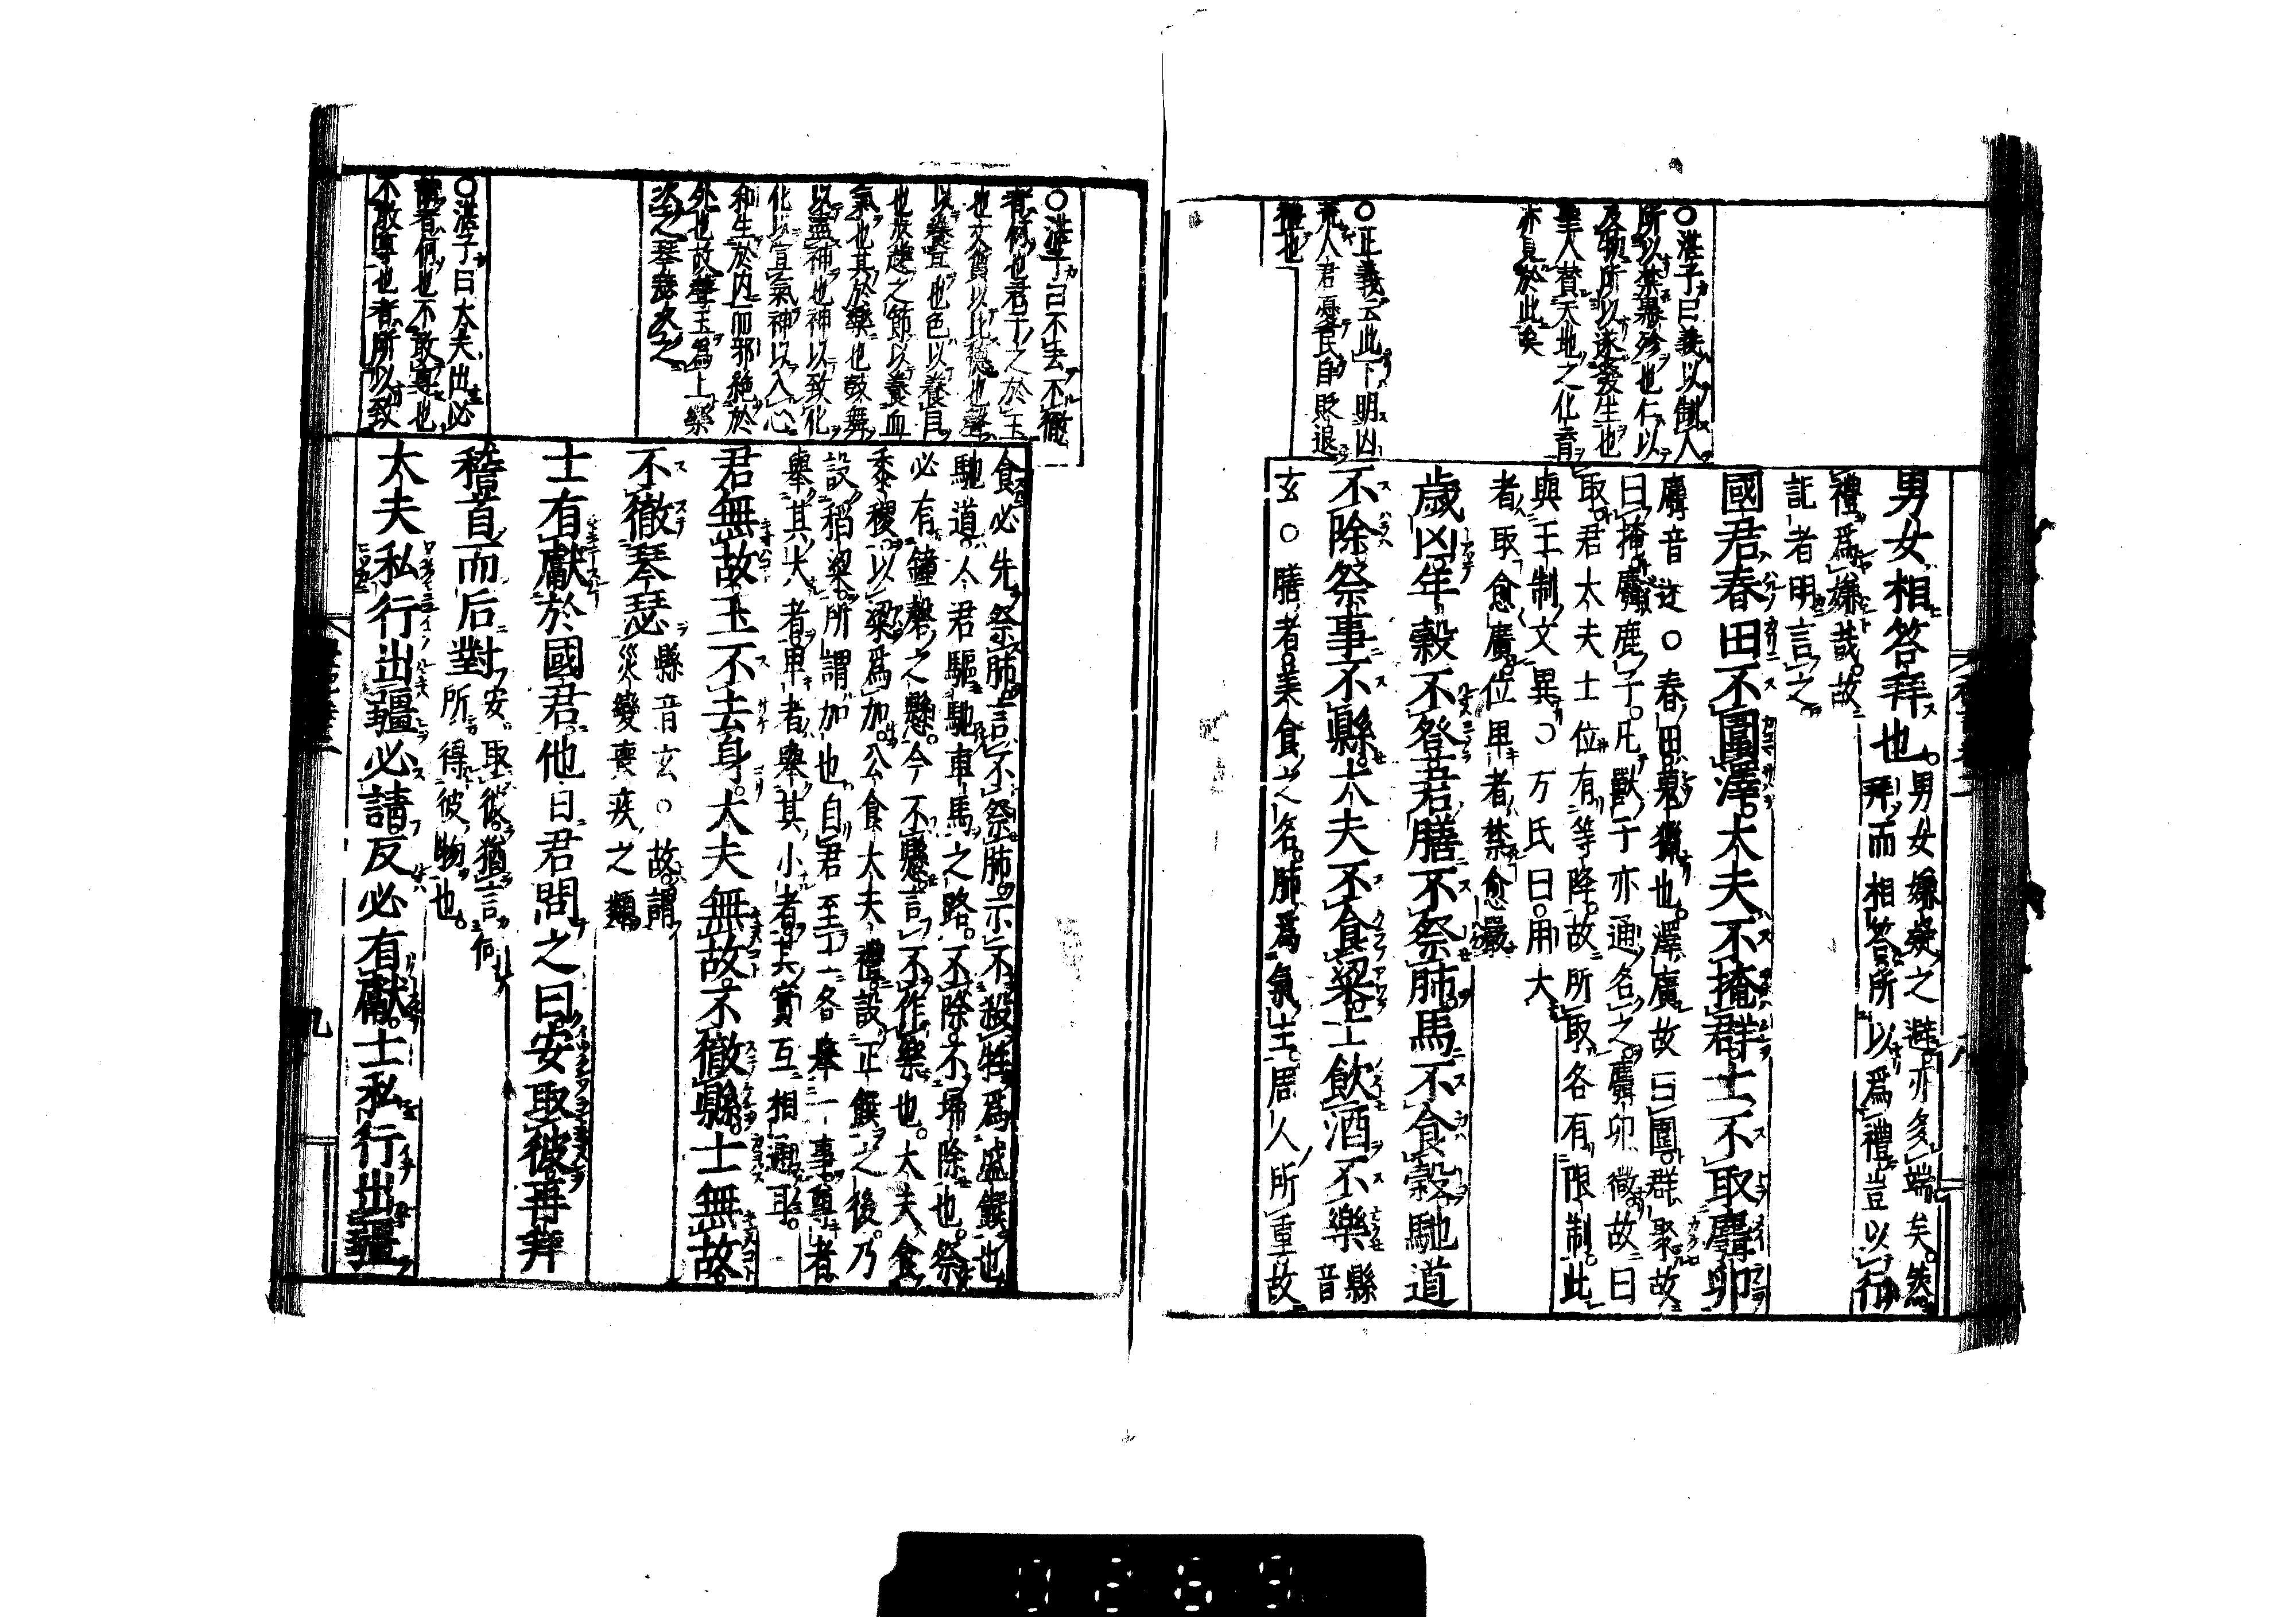 〇湛子曰義以制人
所以禁暴殄也仁以
及物所以遂發生也
聖人賛天地之化育
亦見於此矣
〇正義云此下明凶
荒人君憂民自貶退
禮也
男女相答拜也。男女嫌疑之避亦多端矣。然
拜而相答所以爲禮豈以行
禮爲嫌哉。故
記者明言之
國君春田不圍澤。大夫不掩群。士不取麛卵
麛音迷〇春田蒐獵也。澤廣故曰圍。群聚故
曰掩。麛鹿子。凡獸子亦通名之。麛卵微故曰
取。君大夫士位有等降。故所取各有限制。此
與王制文異〇方氏曰。用大
者取愈廣。位卑者禁愈嚴
歲凶。年穀不登。君膳不祭肺。馬不食穀。馳道
不除。祭事不縣。大夫不食粱。士飲酒不樂縣
音
玄〇膳者。美食之名。肺爲氣主。周人所重。故
〇湛子曰不去不徹
者何也君子之於玉
也文質以比德也聲
以養耳也色以養目
也放趨之節以養血
氣也其於樂也鼓舞
以盡神也神以致化
化以宣氣神以入心
和生於内而邪絶於
外也故聲玉爲上樂
次之琴瑟次之
〇湛子曰大夫出必
請者何也不敢專也
不敢專也者所以致
食必先祭肺。言不祭肺。示不殺牲爲盛饌也
馳道。人君驅馳車馬之路。不除。不埽除也。祭
必有鐘磬之縣。今不懸。言不作樂也。大夫食
黍稷。以粱爲加。公食大夫禮。設正饌之後。乃
設稻粱。所謂加也。自君至士各舉一事。尊者
舉其大者。卑者舉其小者。其實互相通耳。
君無故玉不去身。大夫無故。不徹縣。士無故。
不徹琴瑟縣音玄〇故謂
災變喪疾之類
士有獻於國君。他日君問之曰。安取彼。再拜
稽首而后對安取彼。猶言何
所得彼物也。
大夫私行出疆必請。反必有獻。士私行出疆
九